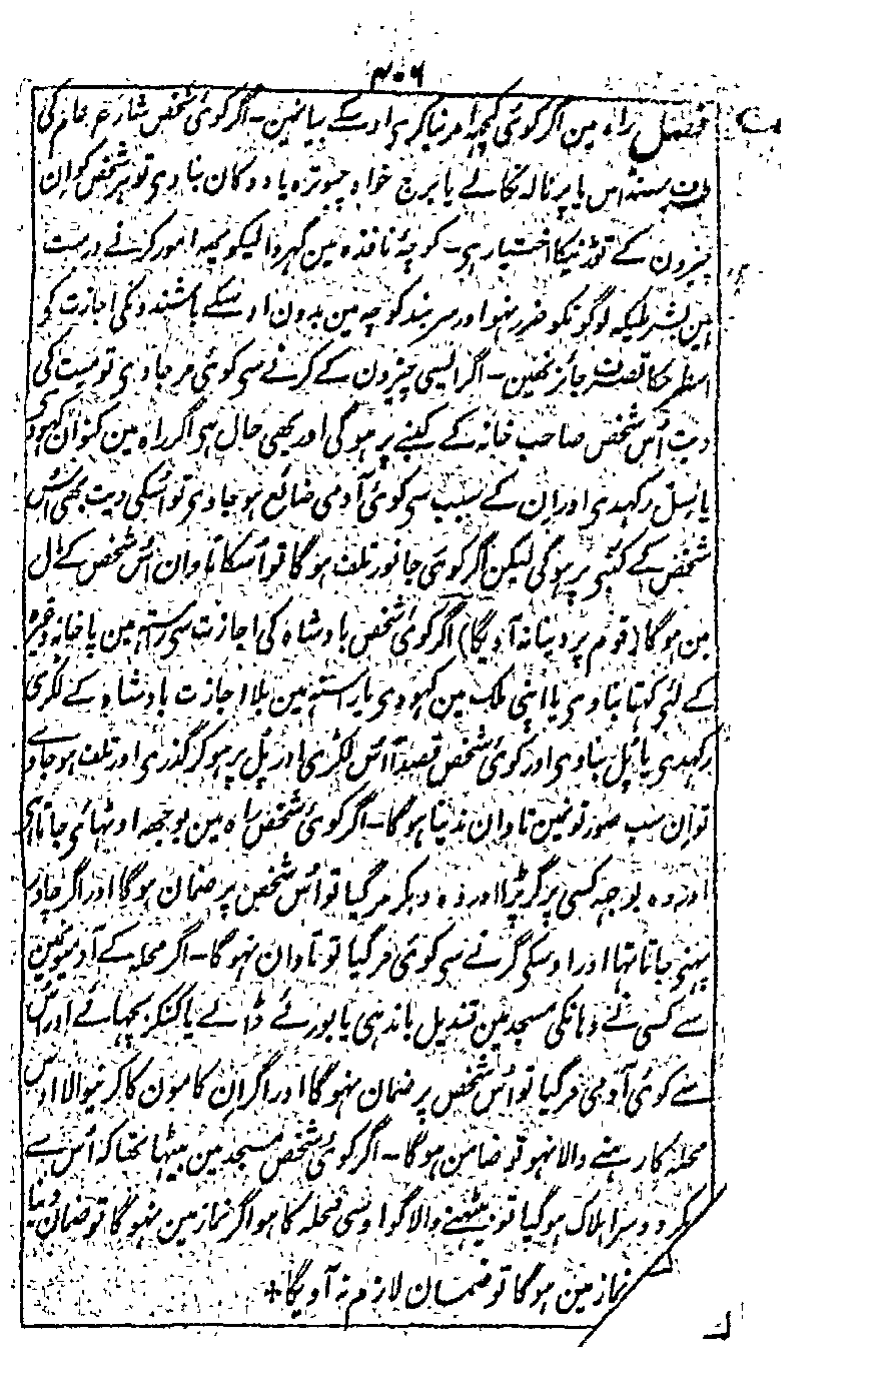 ۴۰۶
فصل راہ مین اگر کوئی کچھ امر نیا کری اوسکے بیانمین۔ اگر کوئی شخص شارع عام کی
طرف سنڈاس یا پرنالہ نکالے یا برج خواہ چبوترہ یا دوکان بنا دی تو ہر شخص کو ان
چیزون کے توڑنیکا اختیار ہی۔ کوچۂ نافذہ مین گہر والیکو یہہ امور کرنے درست
ہین بشرطیکہ لوگونکو ضرر نہو اور سربند کوچہ مین بدون اوسکے باشندونکی اجازت کے
اسطرحکا تصرف جائز نہین۔ اگر ایسی چیزون کے کرنے سی کوئی مر جاوی تو میت کی
دیت اُس شخص صاحب خانہ کے کنبے پر ہوگی اور یہی حال ہی اگر راہ مین کنوان کہودی
یا سِل رکہدی اور ان کے سبب سی کوئی آدمی ضائع ہو جاوی تو اُسکی دیت بھی اُس
شخص کے کنبے پر ہوگی لیکن اگر کوئی جانور تلف ہوگا تو اُسکا تاوان اُس شخص کے مال
مین ہوگا (قوم پر دینا نہ آویگا) اگر کوئی شخص بادشاہ کی اجازت سی رستہ مین پاخانہ وغیرہ
کے لئی کہتا بنا دی یا اپنی ملک مین کہودی یا راستہ مین بلا اجازت بادشاہ کے لکڑی
رکہدی یا پُل بنا دی اور کوئی شخص قصداً اُس لکڑی اور پل پر ہوکر گذری اور تلف ہو جاوے
تو ان سب صورتونمین تاوان ندینا ہوگا۔ اگر کوئی شخص راہ مین بوجھہ اوٹہائی جاتا ہی
اور وہ بوجہ کسی پر گر پڑا اور وہ دبکر مر گیا تو اُس شخص پر ضمان ہوگا اور اگر چادر
پہنی جاتا تہا اور اوسکی گرنے سی کوئی مر گیا تو تاوان نہوگا۔ اگر محلہ کے آدمیونمین
سے کسی نے وہانکی مسجد مین قندیل باندہی یا بورئے ڈالے یا کنکر بچہائے اور اُس
سے کوئی آدمی مر گیا تو اُس شخص پر ضمان نہوگا اور اگر ان کامون کا کرنیوالا اُس
محلہ کا رہنے والا نہو تو ضامن ہوگا۔ اگر کوئی شخص مسجد مین بیٹہا تہا کہ اُس سے
دوسرا ہلاک ہو گیا تو بیٹہنے والا گو اوسی محلہ کا ہو اگر نماز مین نہوگا تو ضمان دینا
نماز مین ہوگا تو ضمان لازم نہ آویگا +